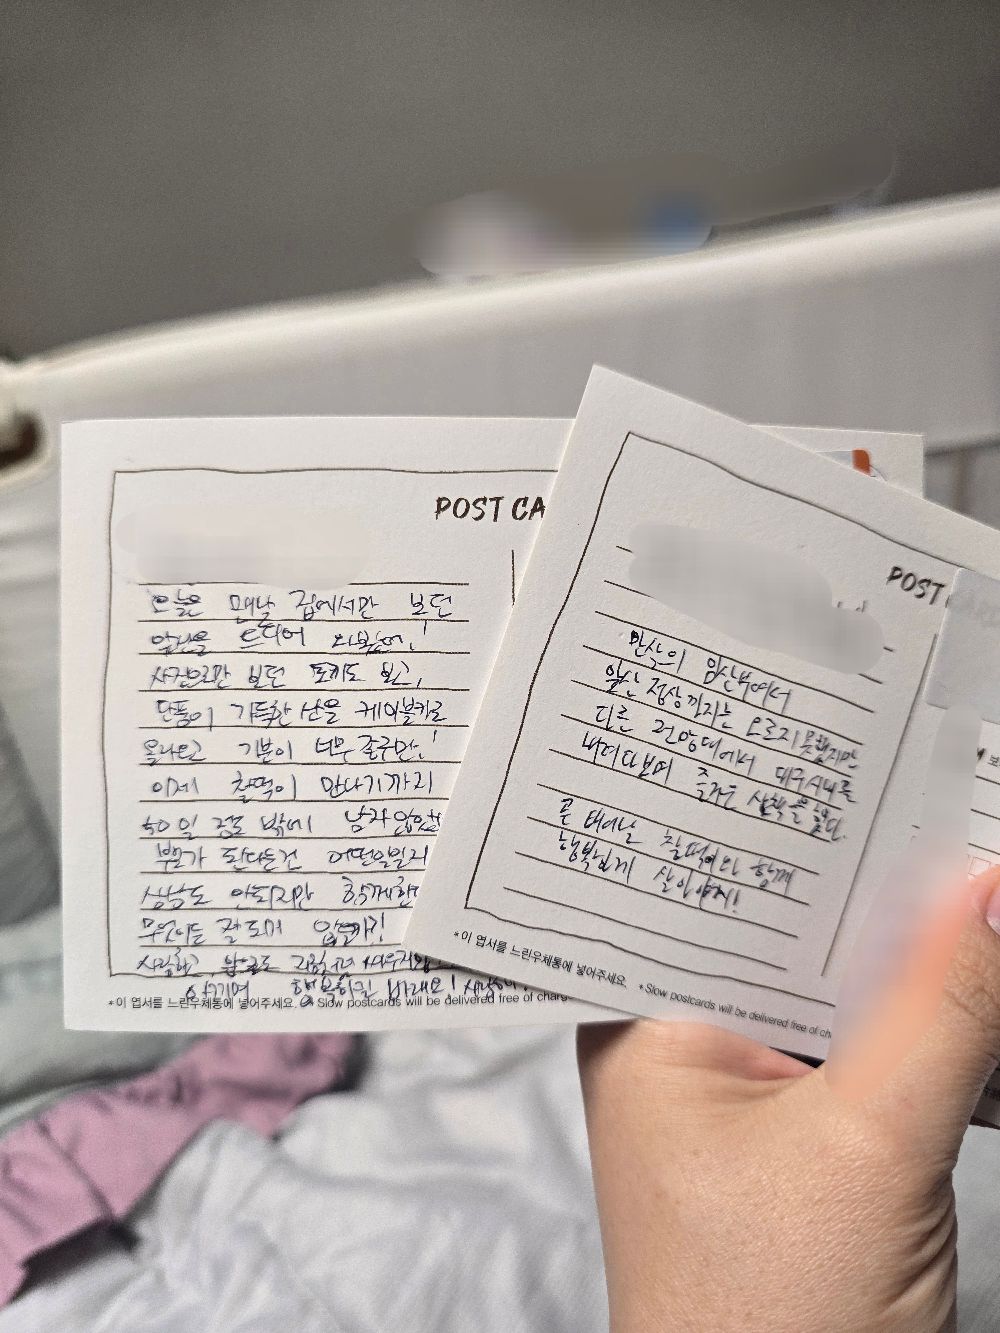 POST CA
오늘은 매날 집에서만 보던
앞산을 드디어 와봤어!
사진으로만 보던 토끼도 보고,
단풍이 가득한 산을 케이블카로
올라오고 기분이 너무 좋구만!
이제 찰떡이 만나기까지
40일 정도 밖에 남지않았
부모가 된다는건 어떤일일지
상상도 안되지만 함께한
무엇이든 잘 되지 않을까!
사랑하고, 앞으로도
아끼며 행복하길 바래요! 사랑해!
*이 엽서를 느린우체통에 넣어주세요. *Slow postcards will be delivered free of charg
POST
만삭의 임산부여서
앞산 정상까지는 오르지 못했지만
다른 전망대에서 대구시내를
내려다보며 즐거운 산책을 했다.
곧 태어날 찰떡이와 함께
행복하게 살아야지!
*이 엽서를 느린우체통에 넣어주세요. *Slow postcards will be delivered free of ch